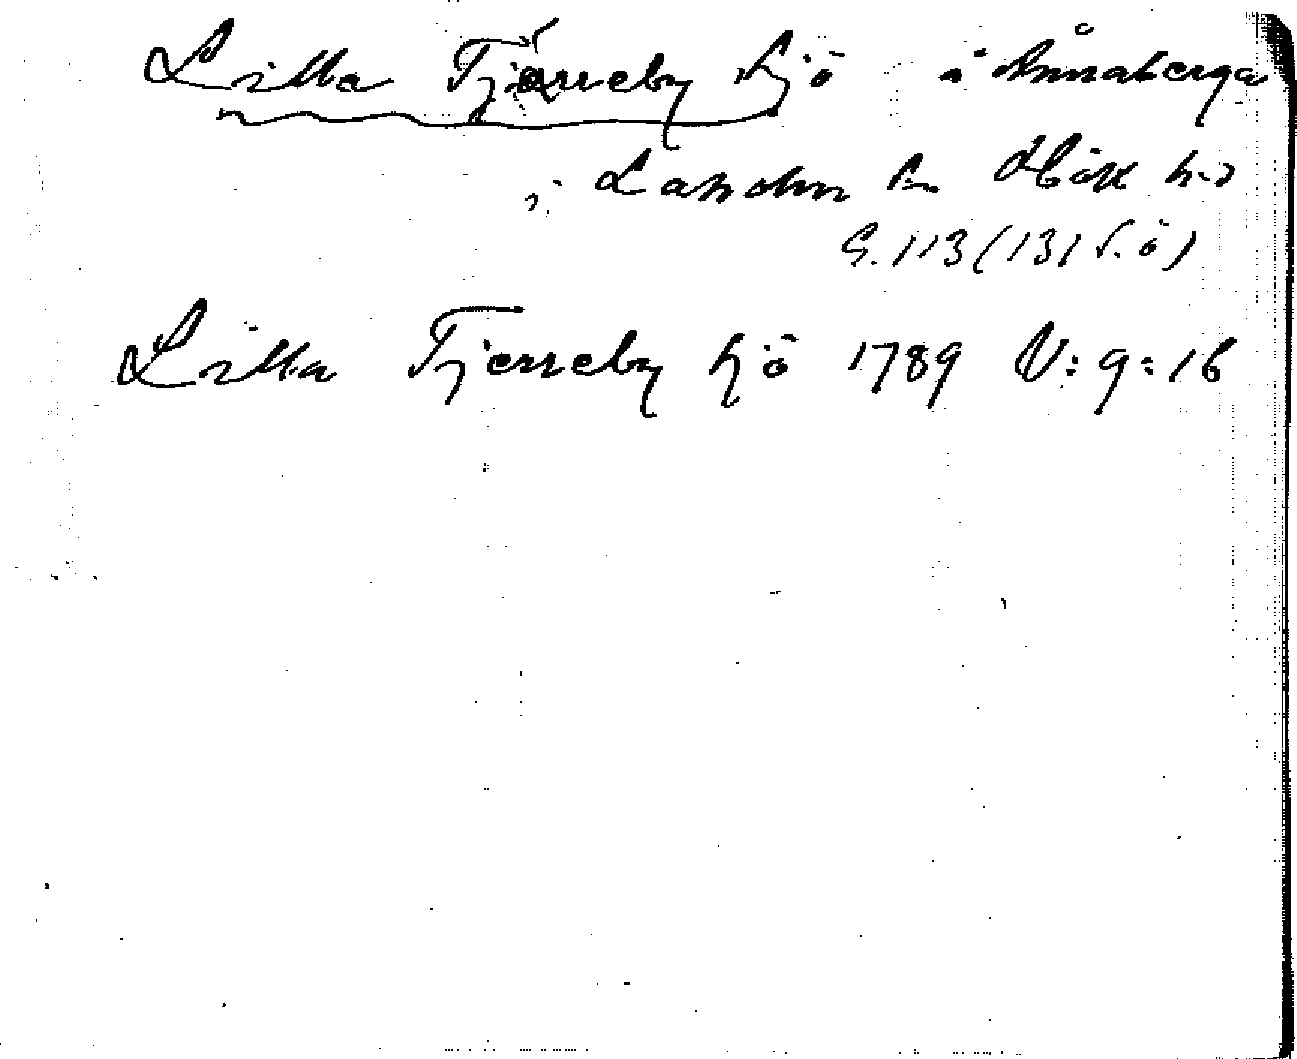 Lilla Tjärreby hjö å Ånnaberga
i Laholm ln Hök hd
S. 113 (131 s. ö)
Lilla Tjerreby hjö 1789 V: 9: 16